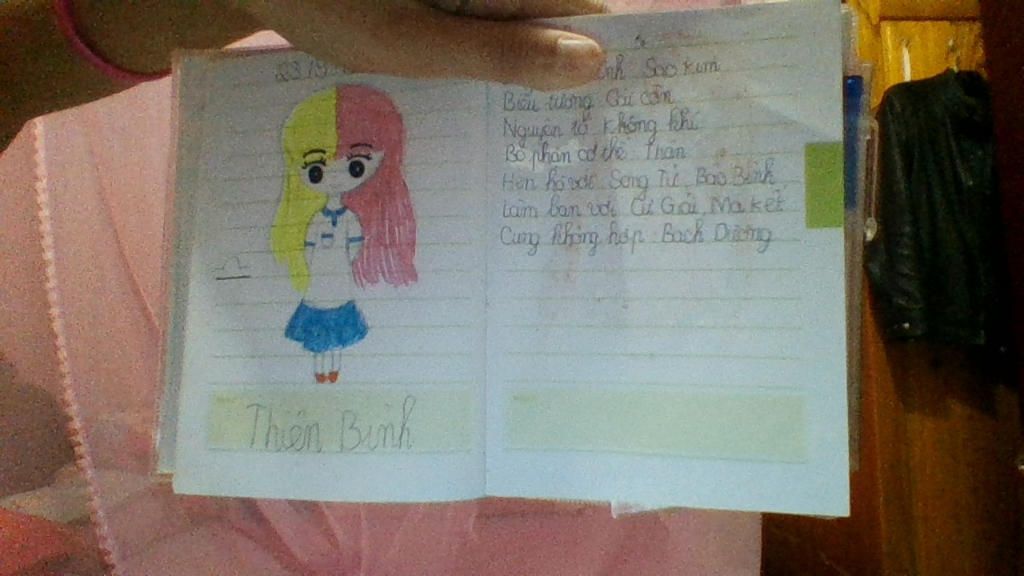 23
Sao Kim
Biểu tượng Cái cân
Nguyên tố Không khí
Bộ phận cơ thể Thận
Hẹn hò với Song Tử, Bảo Bình
Làm bạn với Cự Giải, Ma Kết
Cung không hợp Bạch Dương
♎
Thiên Bình